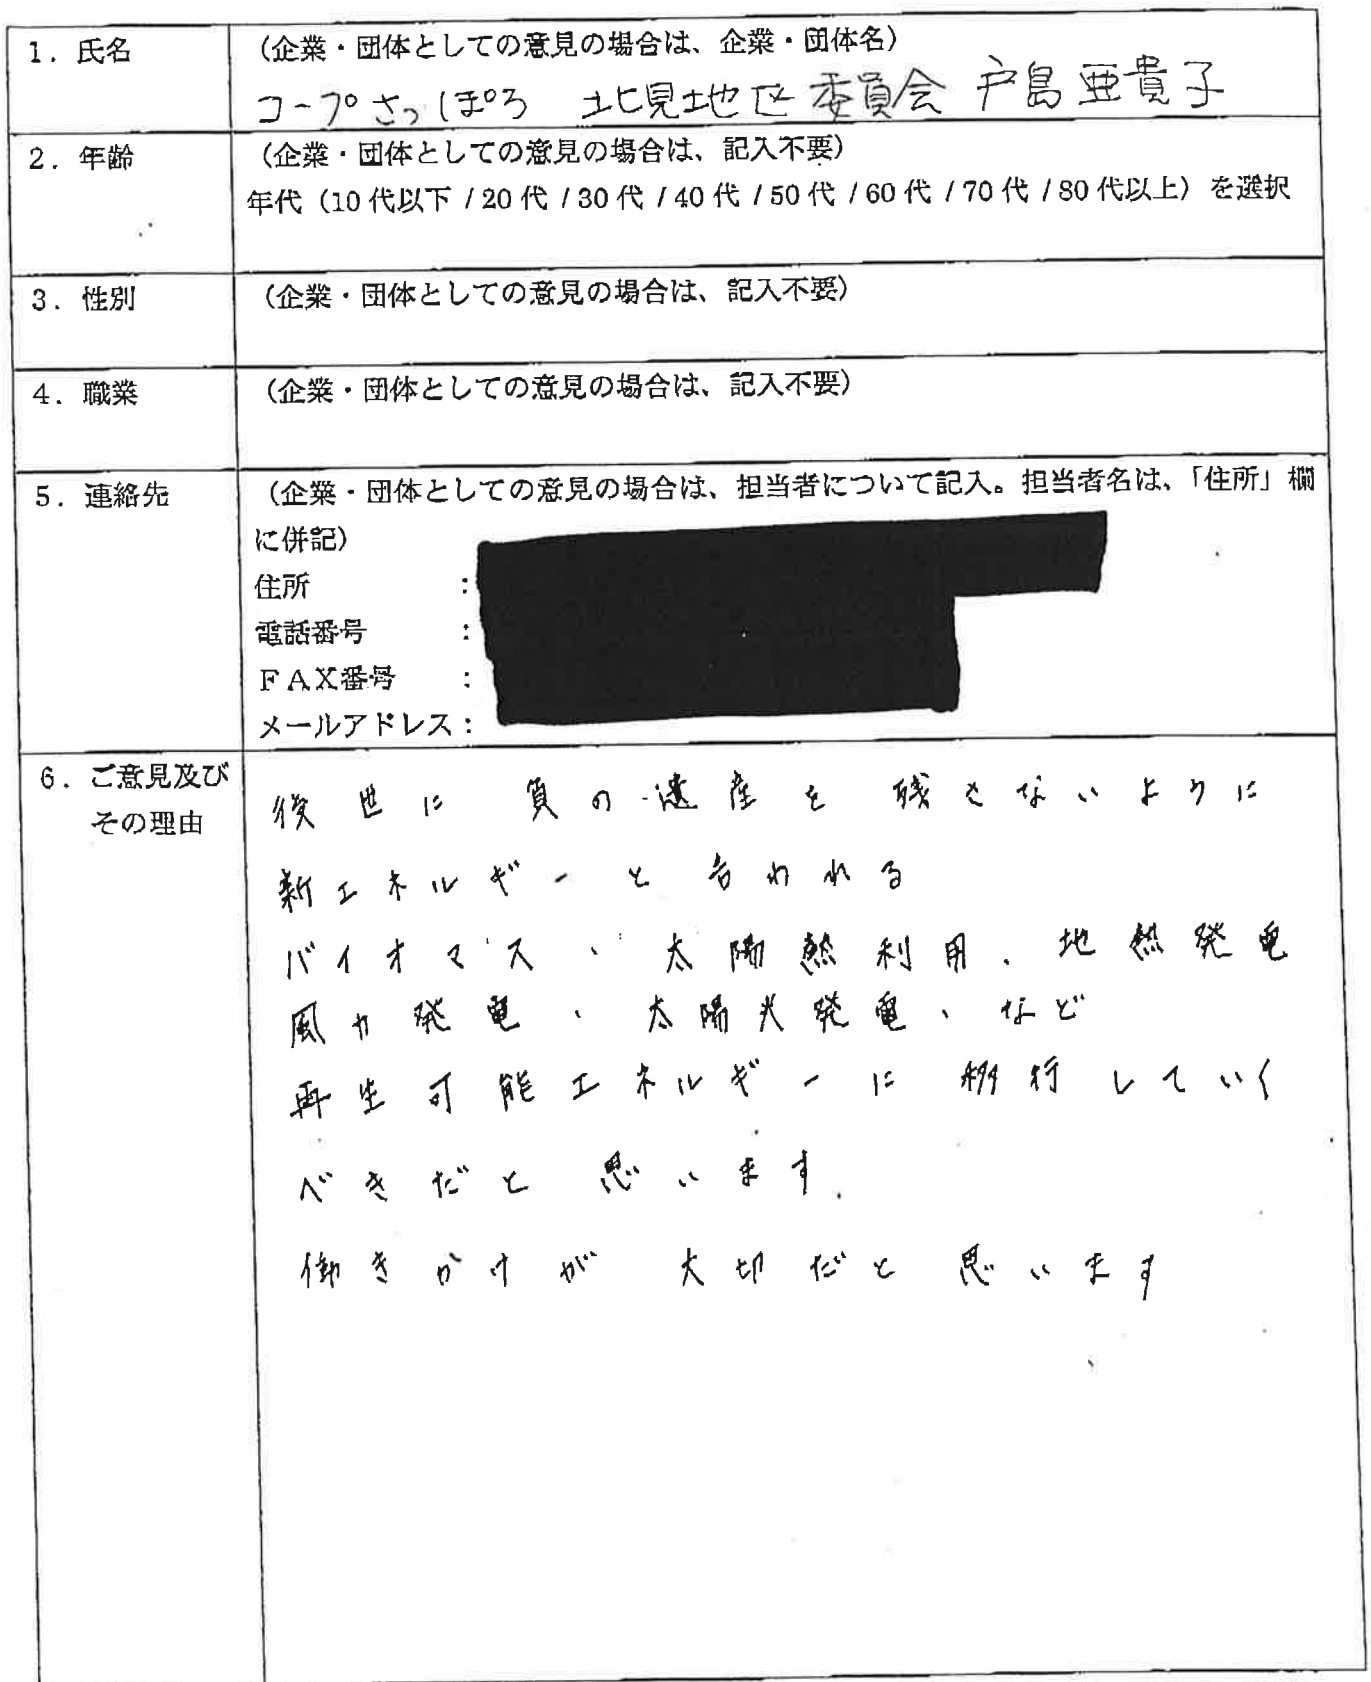 1. 氏名
(企業・団体としての意見の場合は、企業・団体名)
コープさっぽろ 北見地区委員会 戸島亜貴子
2. 年齢
(企業・団体としての意見の場合は、記入不要)
年代(10代以下 / 20代 / 30代 / 40代 / 50代 / 60代 / 70代 / 80代以上)を選択
3. 性別
(企業・団体としての意見の場合は、記入不要)
4. 職業
(企業・団体としての意見の場合は、記入不要)
5. 連絡先
(企業・団体としての意見の場合は、担当者について記入。担当者名は、「住所」欄
に併記)
住所 :
電話番号 :
FAX番号 :
メールアドレス:
6. ご意見及び
その理由
後世に 負の遺産を 残さないように
新エネルギーと言われる
バイオマス、太陽熱利用、地熱発電
風力発電、太陽光発電、など
再生可能エネルギーに移行していく
べきだと思います.
働きかけが 大切だと思います